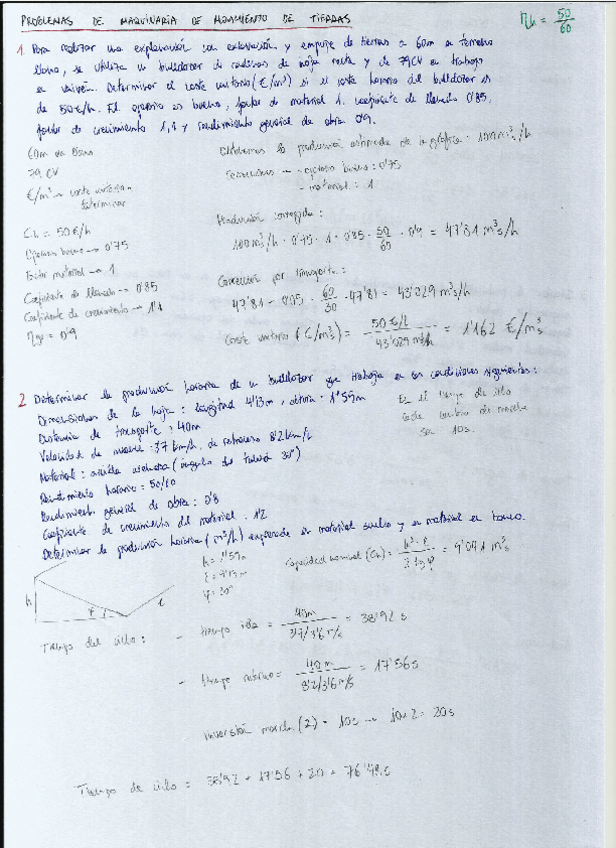 PROBLEMAS DE MAQUINARIA DE MOVIMIENTO DE TIERRAS
ηh = 50/60
1. Para realizar una explanación con excavación y empuje de tierras a 60m en terreno
llano, se utiliza un bulldozer de cadenas de hoja recta y de 79CV en trabajo
en vaivén. Determinar el coste unitario (€/m³) si el coste horario del bulldozer es
de 50€/h. El operario es bueno, factor de material 1. coeficiente de llenado 0'85,
factor de crecimiento 1,1 y rendimiento general de obra 0'9.
60m en llano
79 CV
€/m³ → coste unitario a
determinar
Ch = 50€/h
Operario bueno → 0'75
Factor material → 1
Coeficiente de llenado → 0'85
Coeficiente de crecimiento → 1'1
ηgo = 0'9
Obtenemos la producción estimada de la gráfica: 100 m³/h
- operario bueno: 0'75
- material = 1
Producción corregida:
100 m³/h · 0'75 · 1 · 0'85 · 50/60 · 0'9 = 47'81 m³/h
Corrección por transporte:
47'81 - 0'05 · 60/30 · 47'81 = 43'029 m³/h
Coste unitario (€/m³) = 50€/h / 43'029 m³/h = 1'162 €/m³
2 Determinar la producción horaria de un bulldozer que trabaja en las condiciones siguientes:
Dimensiones de la hoja: longitud 4'13m, altura 1'59m
Distancia de transporte: 40m
Velocidad de avance 3'7 km/h, de retroceso 8'2 km/h
Material: arcilla arenosa (ángulo del talud 30°)
Rendimiento horario: 50/60
Rendimiento general de obra: 0'8
Coeficiente de crecimiento del material: 1'2
Determinar la producción horaria (m³/h) expresada en material suelto y en material en banco.
En el tiempo de ciclo
cada cambio de marcha
son 10s.
h = 1'59m
l = 4'13m
φ = 30°
Capacidad nominal (Cn) = h²·l / 2 tg φ = 9'041 m³
h
φ
l
Tiempo del ciclo:
- tiempo ida = 40m / 3'7/3'6 m/s = 38'92 s
- tiempo retorno = 40m / 8'2/3'6 m/s = 17'56s
inversión marcha (2) = 10s → 10x2 = 20s
Tiempo de ciclo = 38'92 + 17'56 + 20 = 76'48s